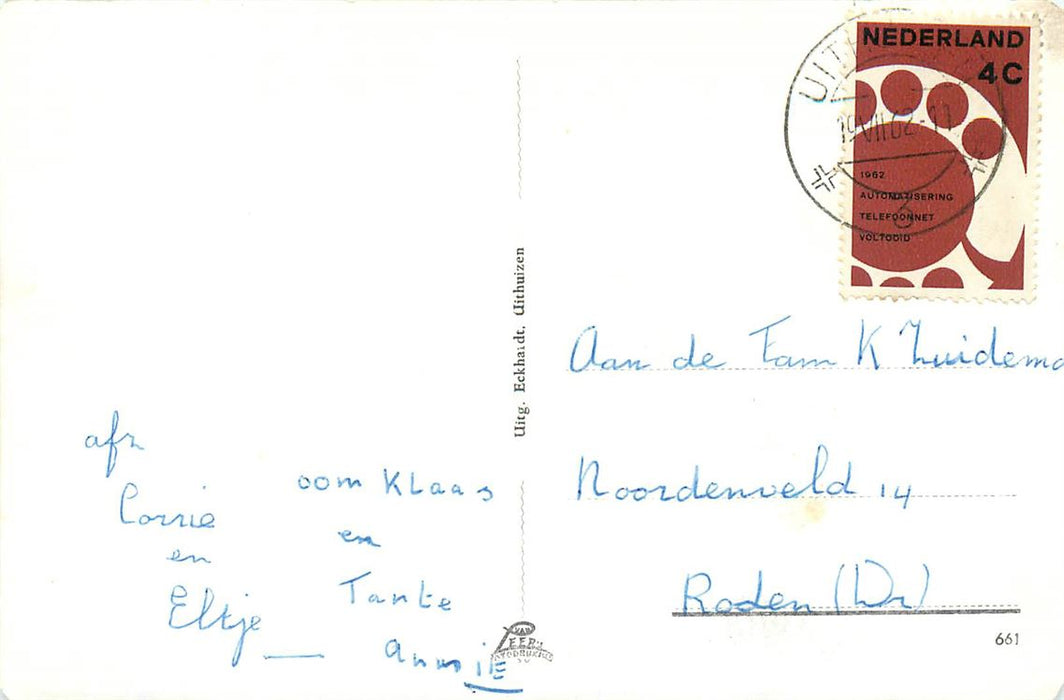 NEDERLAND
4C
19 VII 62
3
1962
AUTOMATISERING
TELEFOONNET
VOLTOOID
Uitg. Eckhardt, Uithuizen
Aan de Fam K Zuidema
Noordenveld 14
Roden (Dr)
afz
Corrie
en
Eltje
oom KLaas
en
Tante
Annie
VAN
LEER'S
661